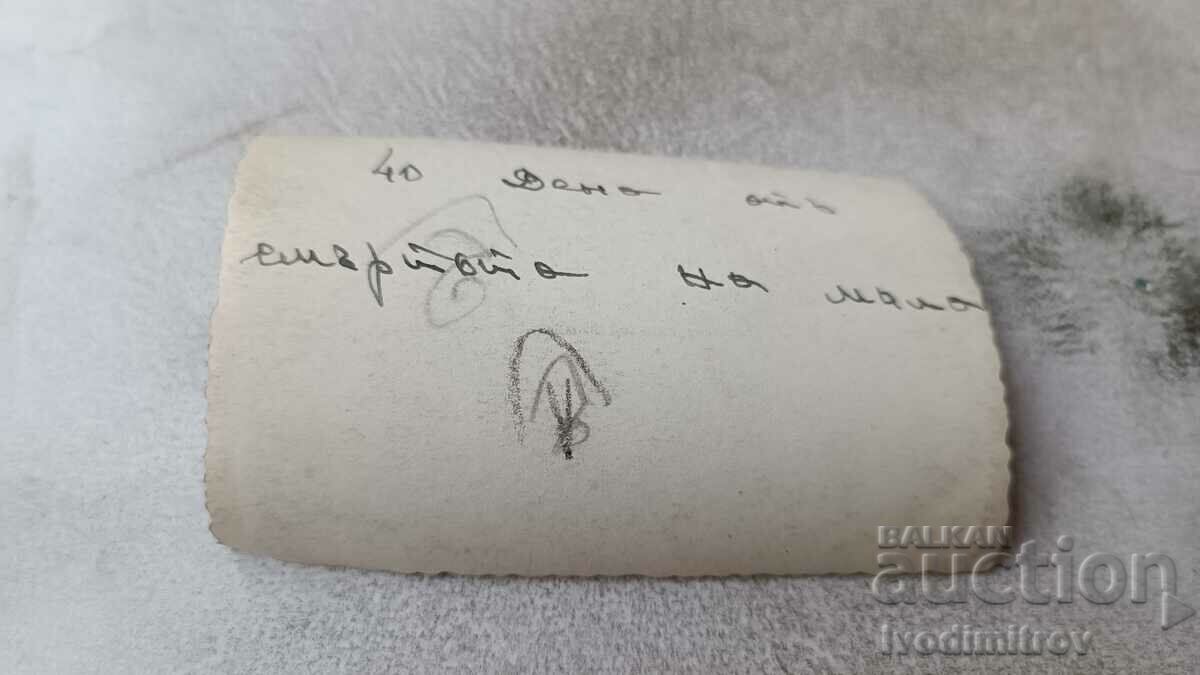 40 Дена отъ
смъртьта на мама
BALKAN
auction
ivodimitrov